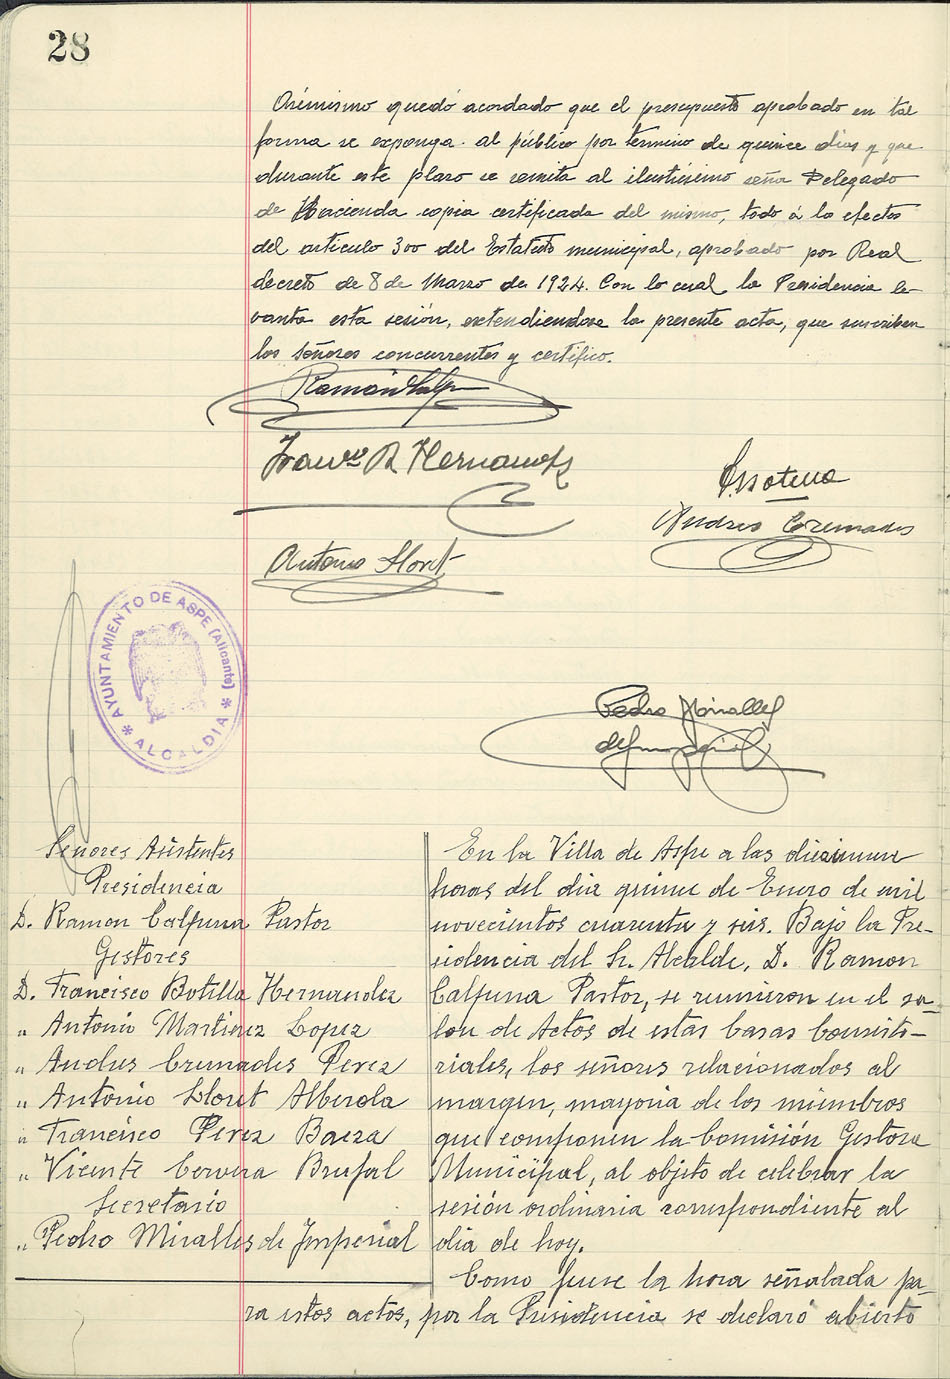 28
Asimismo quedó acordado que el presupuesto aprobado en tal
forma se exponga al público por término de quince días y que
durante este plazo se remita al ilustrísimo señor Delegado
de Hacienda copia certificada del mismo, todo á lo efectos
del artículo 300 del Estatuto municipal, aprobado por Real
decreto de 8 de Marzo de 1924. Con lo cual la Presidencia le-
vanta esta sesión, extendiendose la presente acta, que suscriben
los señores concurrentes y certifico.
Ramón Calp
Franco B Hernandez
Andres Cremades
Antonio Lloret
AYUNTAMIENTO DE ASPE (Alicante)
* ALCALDIA *
Pedro Miralles
Señores Asistentes
Presidencia
D. Ramon Calpena Pastor
Gestores
D. Francisco Botilla Hernandez
" Antonio Martinez Lopez
" Andres Cremades Perez
" Antonio Lloret Alberola
" Francisco Perez Baeza
" Vicente Cervera Brufal
Secretario
" Pedro Miralles de Imperial
En la Villa de Aspe a las diecinueve
horas del dia quince de Enero de mil
novecientos cuarenta y seis. Bajo la Pre-
sidencia del Sr. Alcalde, D. Ramon
Calpena Pastor, se reunieron en el sa-
lon de Actos de estas Casas Consisto-
riales, los señores relacionados al
margen, mayoria de los miembros
que componen la Comisión Gestora
Municipal, al objeto de celebrar la
sesión ordinaria correspondiente al
dia de hoy.
Como fuese la hora señalada pa-
ra estos actos, por la Presidencia se declaró abierto